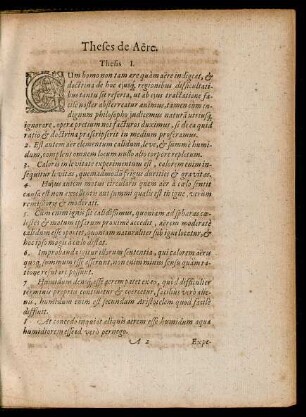 Theses de Aëre.
Thesis I.
CUm homo non tam ære quàm aëre indiget, &
doctrina de hoc ejusq; regionibus difficultati-
bus tantis sit referta, ut ab eius tractatione fa-
cilè noster abhorreat animus, tamen cum in-
dignum philosopho judicemus naturā utensa,
ignorare, operæ pretium nos facturos ducimus, si de ea quid
ratio & doctrina præscripserit in medium proferamus.
2. Est autem aër elementum calidum, leve, & summè humi-
dum, complens omnem locum nullo alio corpore repletum.
3. Caloris in levitate experimentum est, calorem enim in-
sequitur levitas, quemadmodum frigus durities & gravitas.
4. Huius autem motus circularis quem aër à cælo sentit
causa est non excellentis
remissiorq; & moderati.
5. Cum enim ignis sit calidissimus, quoniam ad sphæras cœ-
lestes & motum ipsarum proximè accedit, aërem moderatè
calidum esse oportet, quoniam naturaliter sub igne locatur, &
hoc ipso magis à cœlo distat.
6. Improbanda igitur illorum sententia, qui calorem aëri
quoq; summum esse asserunt, non cum minus sensu quàm ra-
tione rejici possunt.
7. Humidum deniq; esse aërem patet ex eo, quod difficulter
termino proprio continetur & coërcetur, facilius verò alie-
no, humidum enim & secundum Aristotelem quod facilè
diffluit.
8. At concedo inquit aliquis aërem esse humidum aqua
humidiorem esse id verò pernego.
A 2 Expe-